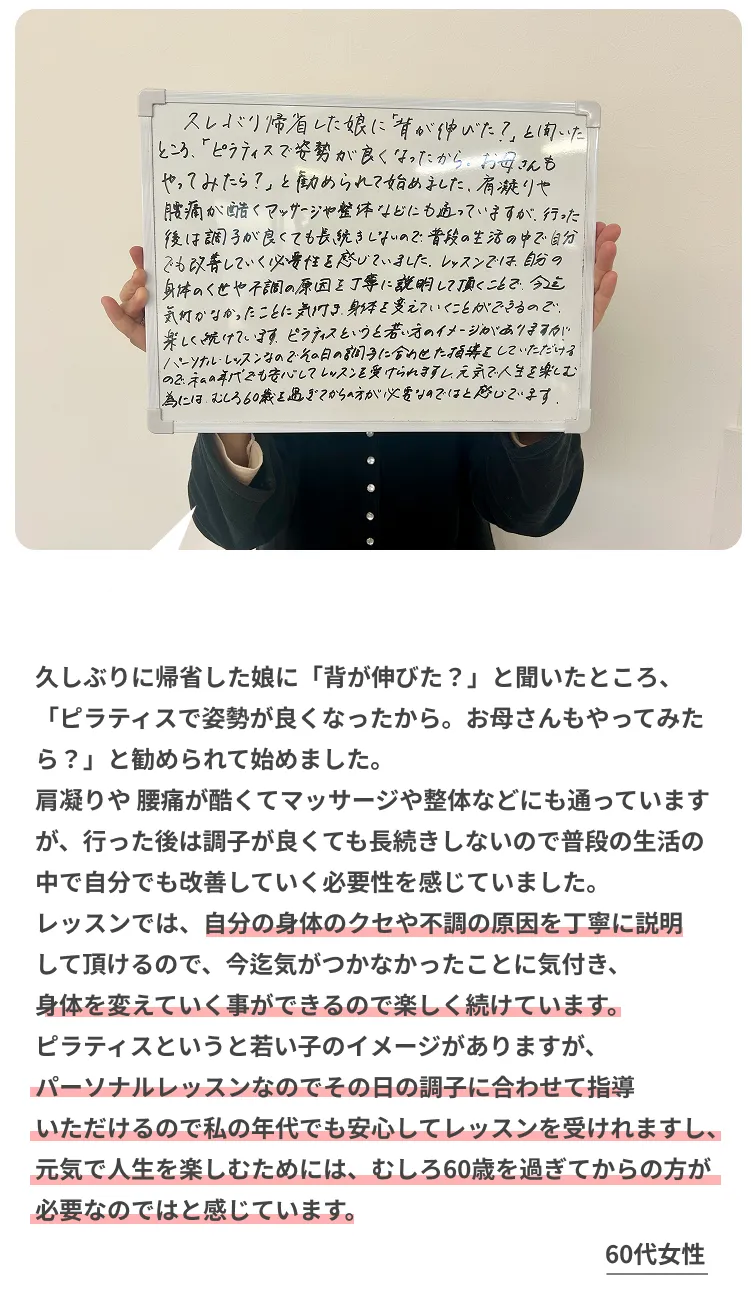 久しぶり帰省した娘に「背が伸びた？」と聞いた
ところ、「ピラティスで姿勢が良くなったから。お母さんも
やってみたら？」と勧められて始めました。肩凝りや
腰痛が酷くマッサージや整体などにも通っていますが、行った
後は調子が良くても長続きしないので、普段の生活の中で自分
でも改善していく必要性を感じていました。レッスンでは、自分の
身体のくせや不調の原因を丁寧に説明して頂くことで、今迄
気付かなかったことに気付き、身体を変えていくことができるので、
楽しく続けています。ピラティスというと若い方のイメージがありますが
パーソナルレッスンなのでその日の調子に合わせた指導をしていただける
ので、私の年代でも安心してレッスンを受けられますし、元気で人生を楽しむ
為には、むしろ60歳を過ぎてからの方が必要なのではと感じています。
久しぶりに帰省した娘に「背が伸びた？」と聞いたところ、
「ピラティスで姿勢が良くなったから。お母さんもやってみた
ら？」と勧められて始めました。
肩凝りや 腰痛が酷くてマッサージや整体などにも通っています
が、行った後は調子が良くても長続きしないので普段の生活の
中で自分でも改善していく必要性を感じていました。
レッスンでは、自分の身体のクセや不調の原因を丁寧に説明
して頂けるので、今迄気がつかなかったことに気付き、
身体を変えていく事ができるので楽しく続けています。
ピラティスというと若い子のイメージがありますが、
パーソナルレッスンなのでその日の調子に合わせて指導
いただけるので私の年代でも安心してレッスンを受けれますし、
元気で人生を楽しむためには、むしろ60歳を過ぎてからの方が
必要なのではと感じています。
60代女性